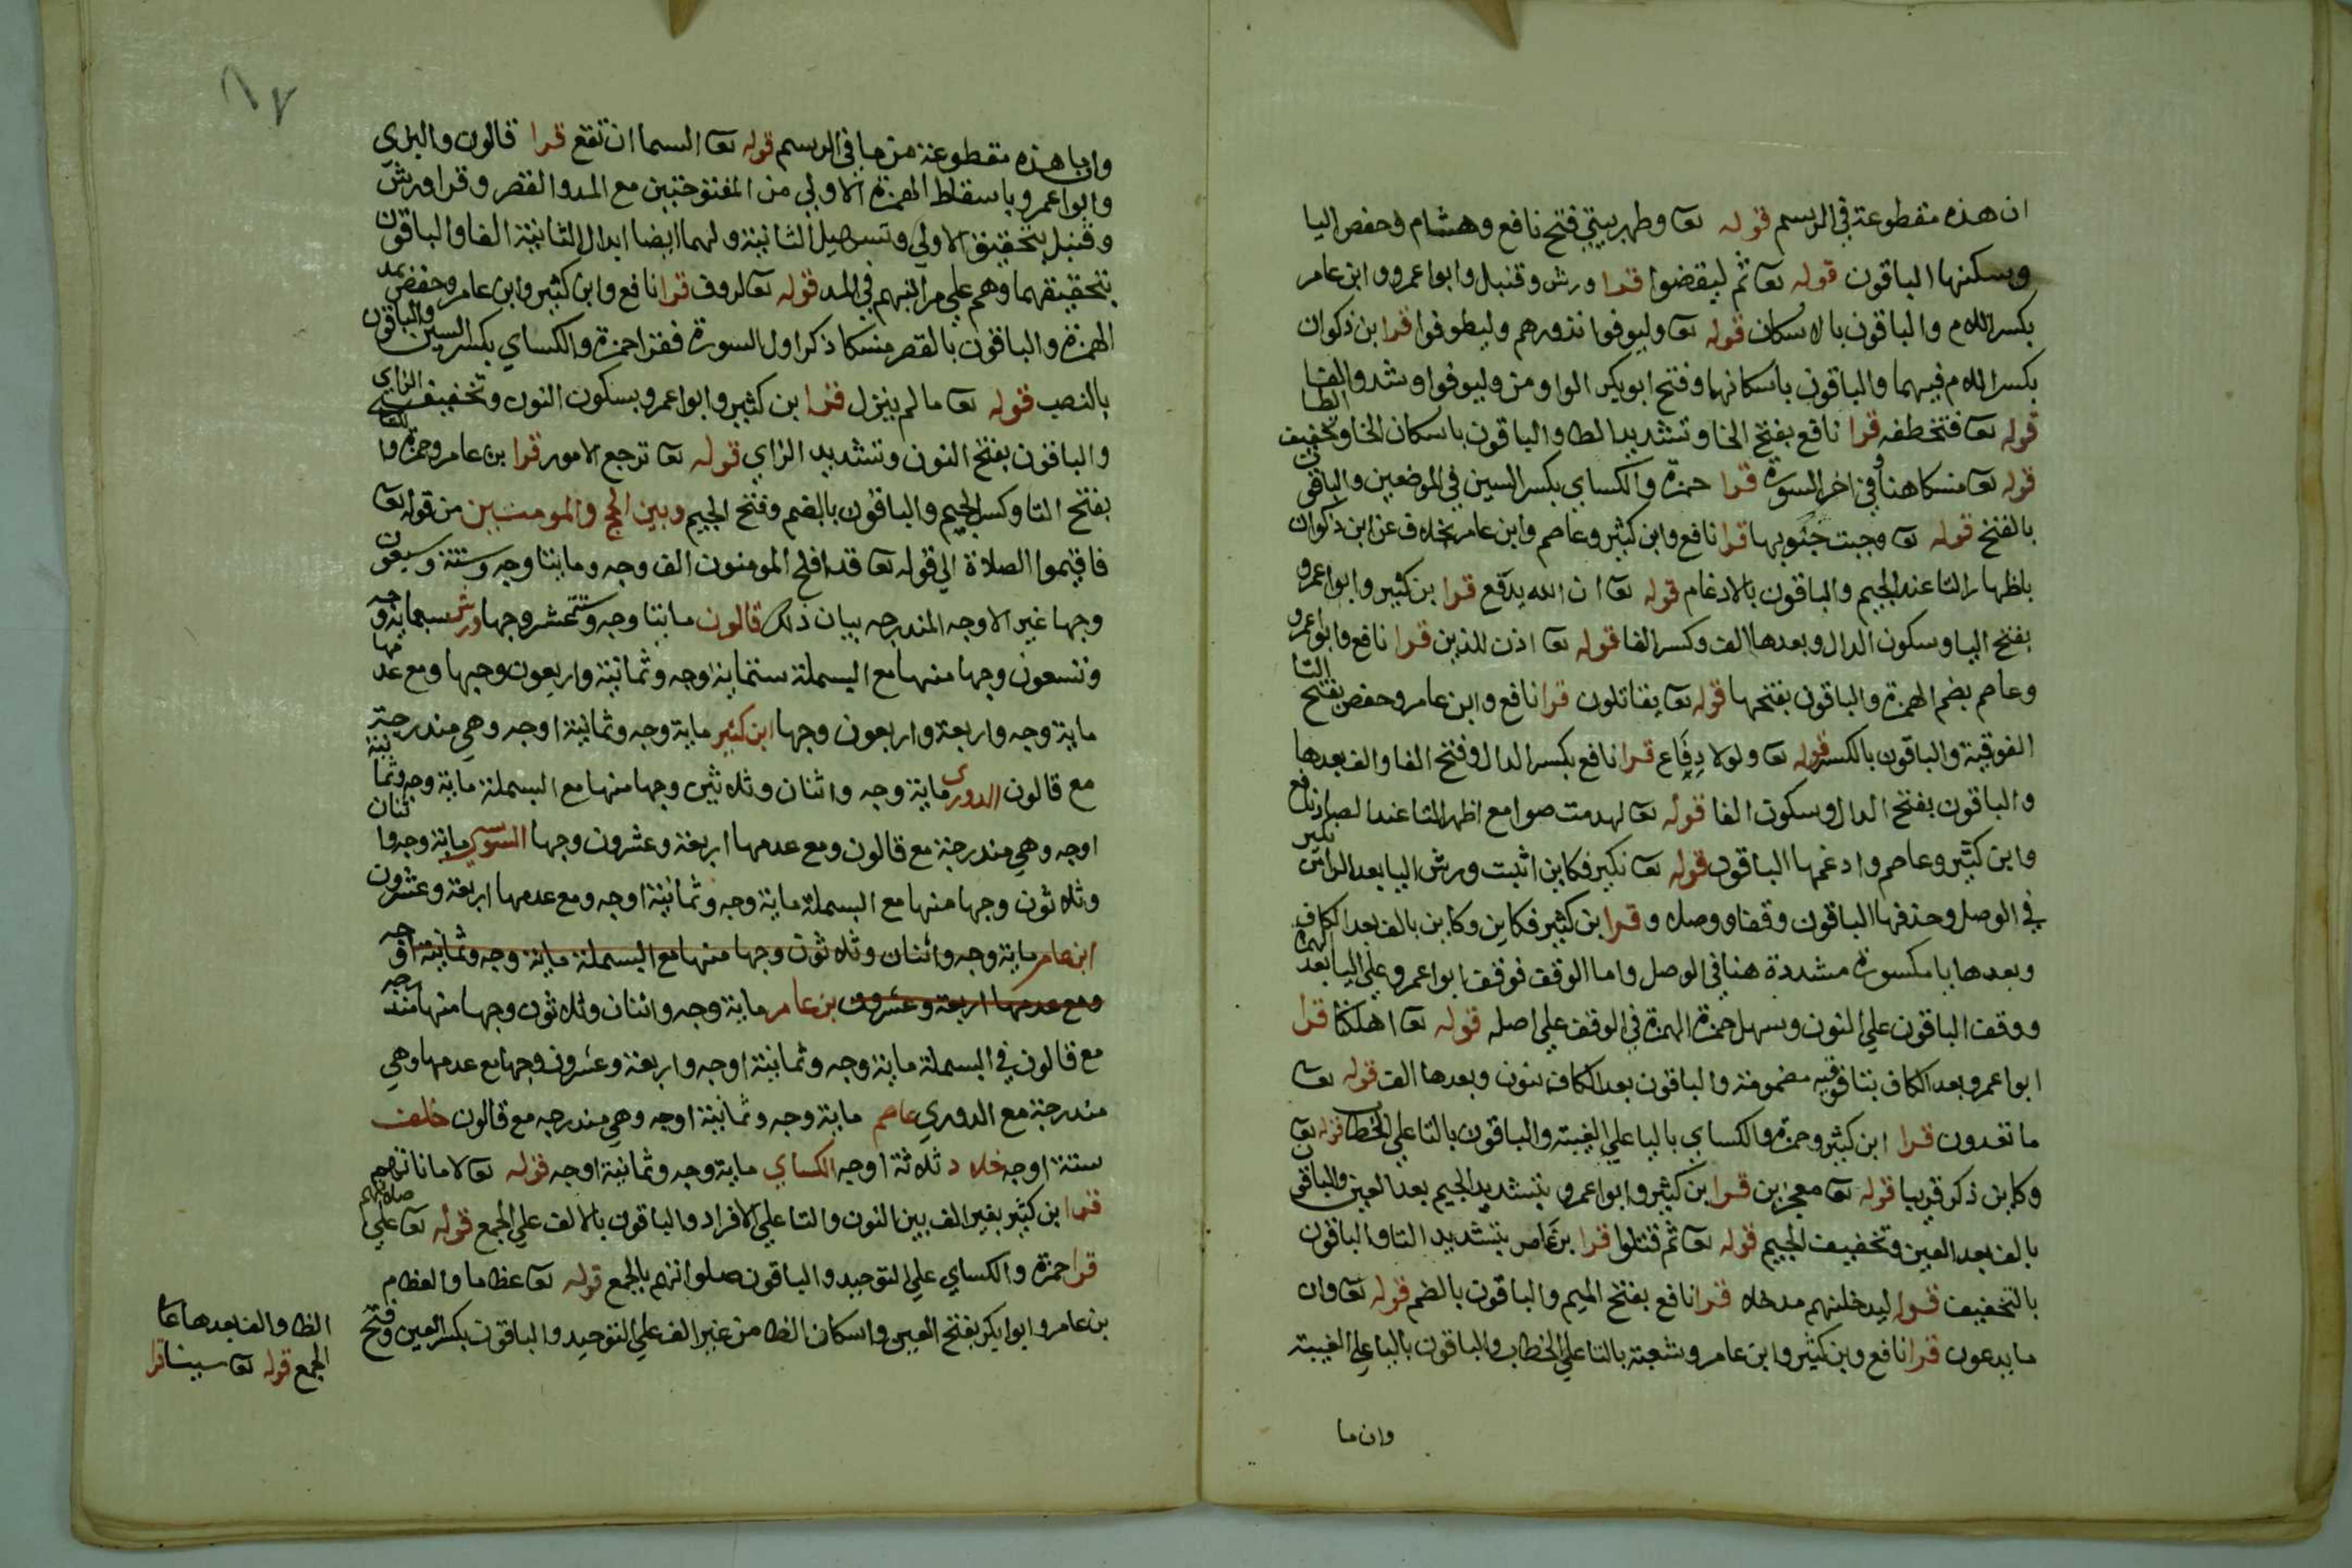 ان هذه مقطوعة في الرسم قوله تعا وطهر بيتي فتح نافع وهشام وحفص اليا
وسكنها الباقون قوله تعا ثم ليقضوا قرا ورش وقنبل وابوا عمرو وابن عامر
بكسر اللام والباقون بالاسكان قوله تعا وليوفوا نذورهم وليطوفوا قرا بن ذكوان
بكسر اللام فيهما والباقون باسكانهما وفتح ابو بكر الواو من وليوفوا وشدد الفا
قوله تعا فتخطفه قرا نافع بفتح الخا وتشديد الطا والباقون باسكان الخا وتخفيف الطا
قوله تعا منسكا هنا وفي اخر السورة قرا حمزة والكساي بكسر السين في الموضعين والباقون
بالفتح قوله تعا وجبت جنوبها قرا نافع وابن كثير وعاصم وابن عامر بخلاف عن ابن ذكوان
باظهار التا عند الجيم والباقون بالادغام قوله تعا ان الله يدفع قرا بن كثير وابوا عمرو
بفتح اليا وسكون الدال وبعدها الف وكسر الفا قوله تعا اذن للذين قرا نافع وابوا عمرو
وعاصم بضم الهمزة والباقون بفتحها قوله تعا يقاتلون قرا نافع وابن عامر وحفص بفتح التا
الفوقية والباقون بالكسر قوله تعا ولولا دفاع قرا نافع بكسر الدال وفتح الفا والف بعدها
والباقون بفتح الدال وسكون الفا قوله تعا لهدمت صوامع اظهر التا عند الصاد نافع
وابن كثير وعاصم وادغمها الباقون قوله تعا نكير فكاين اثبت ورش اليا بعد الرا من نكير
في الوصل وحذفها الباقون وقفا ووصلا وقرا بن كثير فكاين وكاين بالف بعد الكاف
وبعدها يا مكسورة مشددة هنا في الوصل واما الوقف فوقف ابوا عمرو علي اليا بعد الهمزة
ووقف الباقون علي النون وسهل حمزة الهمزة في الوقف علي اصله قوله تعا اهلكنا قرا
ابوا عمرو بعد الكاف بتا فوقيه مضمومة والباقون بعد الكاف بنون وبعدها الف قوله تعا
ما تعدون قرا ابن كثير وحمزة والكساي باليا علي الغيبة والباقون بالتا علي الخطاب قوله تعا
وكاين ذكر قريبا قوله تعا معجزين قرا بن كثير وابوا عمرو بتشديد الجيم بعد العين والباقون
بالف بعد العين وتخفيف الجيم قوله تعا ثم قتلوا قرا بن عامر بتشديد التا والباقون
بالتخفيف قوله ليدخلنهم مدخلا قرا نافع بفتح الميم والباقون بالضم قوله تعا وان
ما يدعون قرا نافع وبن كثير وابن عامر وشعبة بالتا علي الخطاب والباقون باليا علي الغيبة
وان ما
١٧
وان ما هذه مقطوعة من ما في الرسم قوله تعا السما ان تقع قرا قالون والبزي
وابوا عمرو باسقاط الهمزة الاولي من المفتوحتين مع المد والقصر وقرا ورش
وقنبل بتحقيق الاولي وتسهيل الثانية ولهما ايضا ابدال الثانية الفا والباقون
بتحقيقهما وهم علي مراتبهم في المد قوله تعا لروف قرا نافع وابن كثير وابن عامر وحفص بمد
الهمزة والباقون بالقصر منسكا ذكر اول السورة فقرا حمزة والكساي بكسر السين والباقون
بالنصب قوله تعا ما لم ينزل قرا بن كثير وابوا عمرو بسكون النون وتخفيف الزاي
والباقون بفتح النون وتشديد الزاي قوله تعا ترجع الامور قرا بن عامر وحمزة والكسا
بفتح التا وكسر الجيم والباقون بالضم وفتح الجيم وبين الحج والمومنين من قوله تعا
فاقيموا الصلاة الي قوله تعا قد افلح المومنون الف وجه ومايتا وجه وستة وسبعون
وجها غير الاوجه المندرجه بيان ذلك قالون مايتا وجه وستة عشر وجها ورش سبعماية وجه
وتسعون وجها منها مع البسملة ستماية اوجه وثمانية واربعون وجها ومع عدمها
ماية وجه واربعة واربعون وجها ابن كثير ماية وجه وثمانية اوجه وهي مندرجة
مع قالون الدوري ماية وجه واثنان وثلاثين وجها منها مع البسملة ماية وجه وثمانية
اوجه وهي مندرجة مع قالون ومع عدمها اربعة وعشرون وجها السوسي ماية وجه واثنان
وثلاثون وجها منها مع البسملة ماية وجه وثمانية اوجه ومع عدمها اربعة وعشرون
ابن عامر ماية وجه واثنان وثلاثون وجها منها مع البسملة ماية وجه وثمانية اوجه
ومع عدمها اربعة وعشرون بن عامر ماية وجه واثنان وثلاثون وجها منها مندرجه
مع قالون في البسملة ماية وجه وثمانية اوجه واربعة وعشرون وجها مع عدمها وهي
مندرجة مع الدوري عاصم ماية وجه وثمانية اوجه وهي مندرجه مع قالون خلف
ستة اوجه خلاد ثلاثة اوجه الكساي ماية وجه وثمانية اوجه قوله تعا لاماناتهم
قرا ابن كثير بغير الف بين النون والتا علي الافراد والباقون بالالف علي الجمع قوله تعا علي صلاتهم
قرا حمزة والكساي علي التوحيد والباقون صلواتهم بالجمع قوله تعا عظاما والعظام
بن عامر وابوا بكر بفتح العين واسكان الظا من غير الف علي التوحيد والباقون بكسر العين وفتح
الظا والف بعدها علي
الجمع قوله تعا سينا قرا